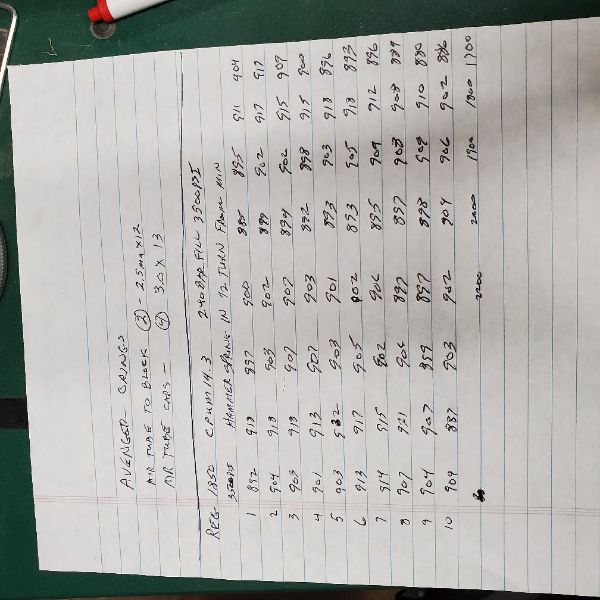 AVENGER - ORINGS
AIR TUBE TO BLOCK (3) - 2.5mm x 12
AIR TUBE CAPS - (4) 3.0 x 13
REG 1850 14.3 240 BAR FILL 3500PSI
3500PSI HAMMER SPRING IN 1/2 TURN FROM MIN
1 892 918 897 900 885 895 911 904
2 904 918 903 902 899 902 917 917
3 903 918 907 907 894 902 915 909
4 901 913 907 903 892 898 915 900
5 903 932 903 901 893 903 918 896
6 913 917 905 902 893 905 918 893
7 914 915 902 906 895 909 912 896
8 907 921 904 897 897 908 908 889
9 904 907 899 897 898 908 910 880
10 909 887 903 902 904 906 902 886
2200 2000 1900 1800 1700